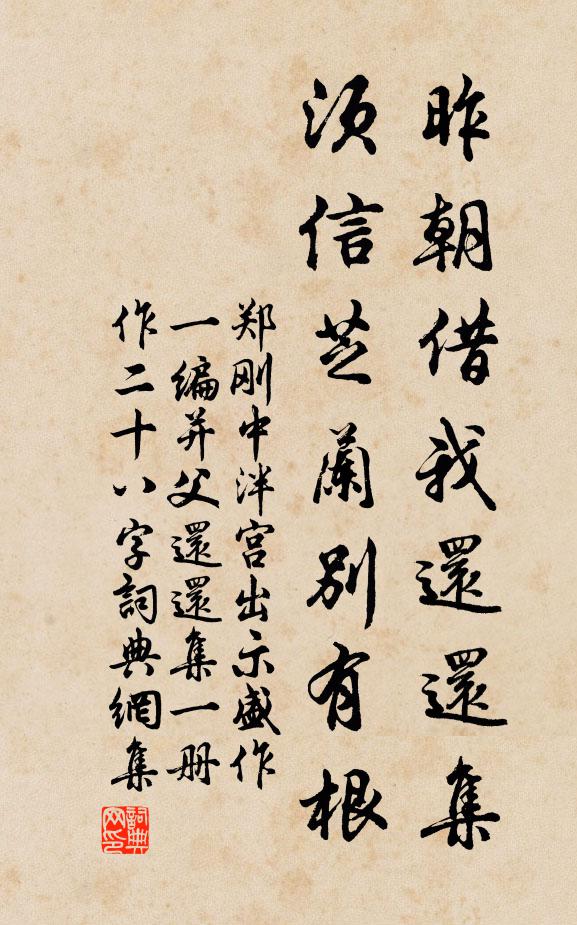 昨朝借我還還集
須信芝蘭別有根
郑刚中泮宫出示盛作
一编并父還還集一册
作二十八字詞典網集
詞典網印